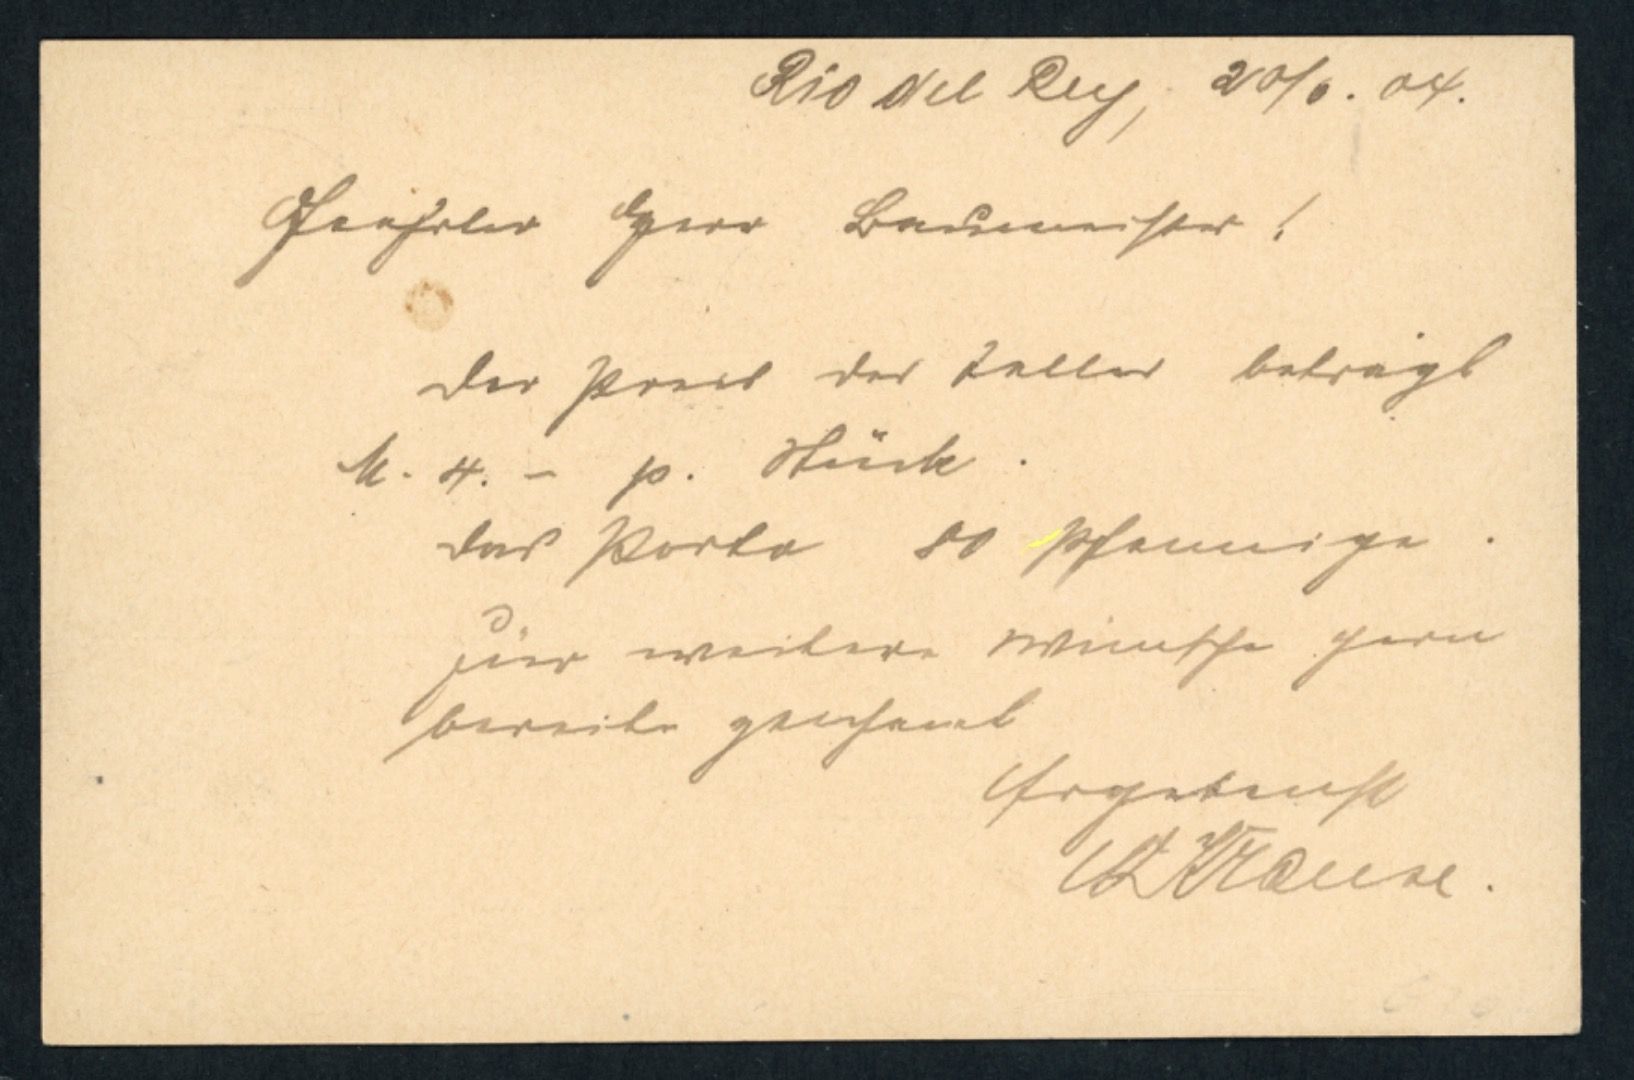 Rio del Rey, 20/6. 04.
Geehrter Herr Baumeister!
Der Preis der Teller beträgt
M. 4. – p. Stück.
Das Porto 80 Pfennige.
Für weitere Wünsche gern
bereite
Ergebenst
Krause.